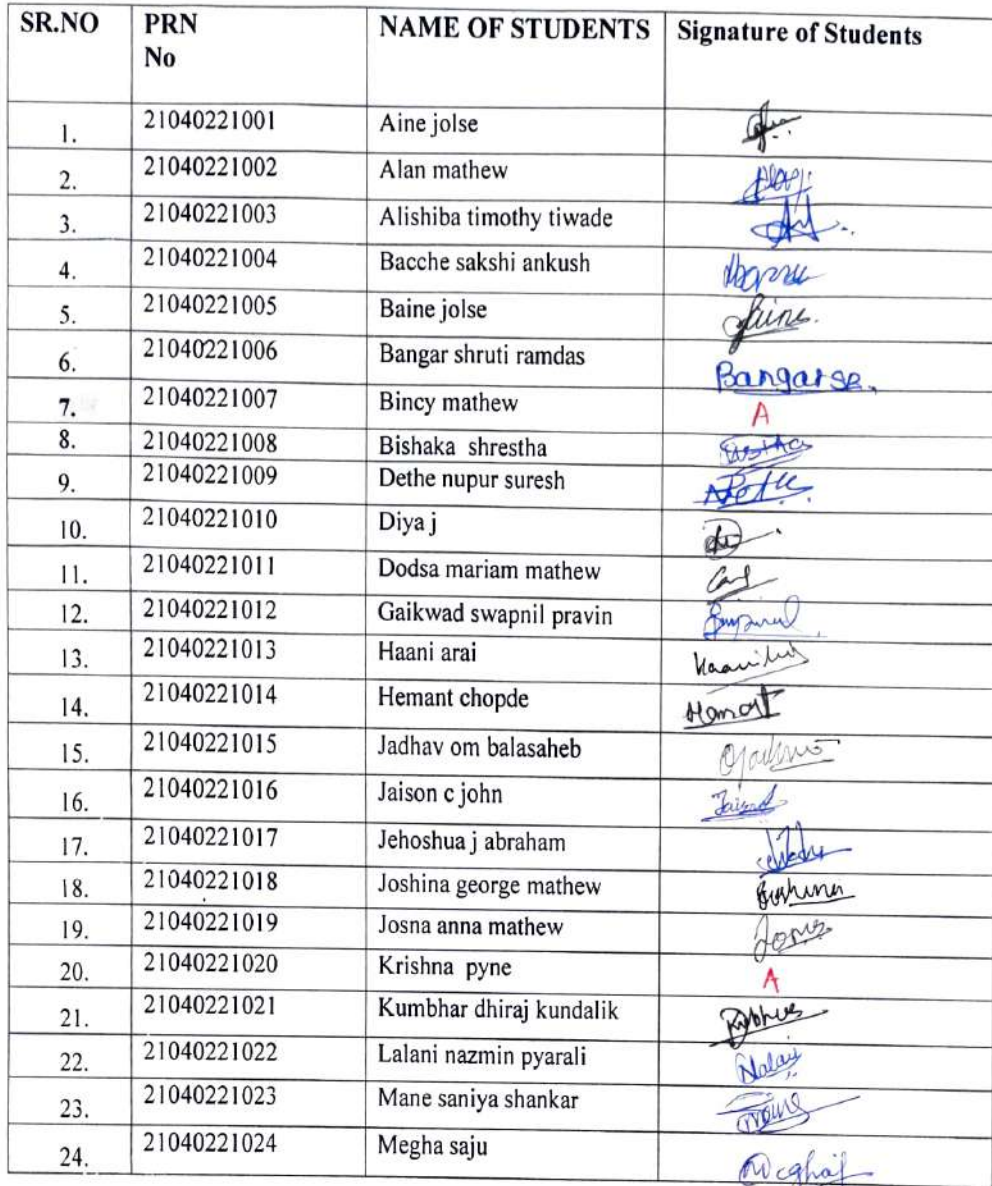 SR.NO PRN No NAME OF STUDENTS Signature of Students
1. 21040221001 Aine jolse
2. 21040221002 Alan mathew
3. 21040221003 Alishiba timothy tiwade
4. 21040221004 Bacche sakshi ankush
5. 21040221005 Baine jolse
6. 21040221006 Bangar shruti ramdas Bangarse.
7. 21040221007 Bincy mathew A
8. 21040221008 Bishaka shrestha
9. 21040221009 Dethe nupur suresh
10. 21040221010 Diya j
11. 21040221011 Dodsa mariam mathew
12. 21040221012 Gaikwad swapnil pravin
13. 21040221013 Haani arai
14. 21040221014 Hemant chopde
15. 21040221015 Jadhav om balasaheb
16. 21040221016 Jaison c john
17. 21040221017 Jehoshua j abraham
18. 21040221018 Joshina george mathew
19. 21040221019 Josna anna mathew
20. 21040221020 Krishna pyne A
21. 21040221021 Kumbhar dhiraj kundalik
22. 21040221022 Lalani nazmin pyarali
23. 21040221023 Mane saniya shankar
24. 21040221024 Megha saju